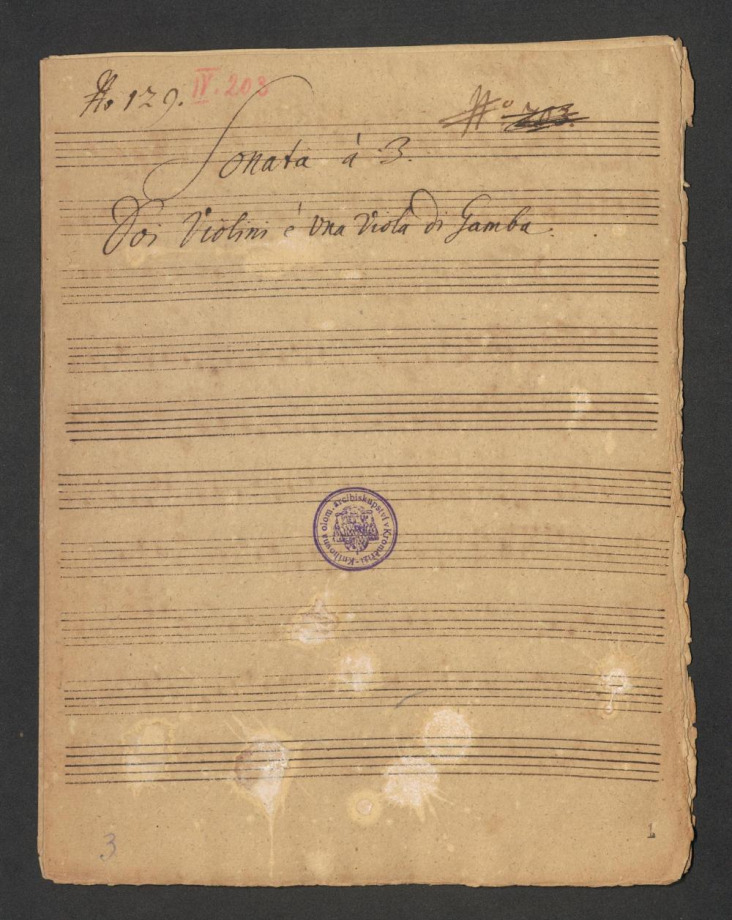 No 129. IV. 208
No 203.
Sonata à 3.
Doi Violini è Una Viola di Gamba.
Knihovna olom. arcibiskupství v Kroměříži
3
1